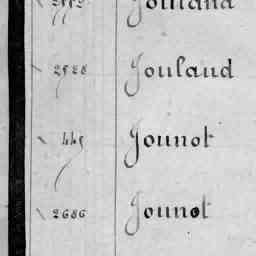 Jouland
2528 Jouland
445 Jounot
2686 Jounot